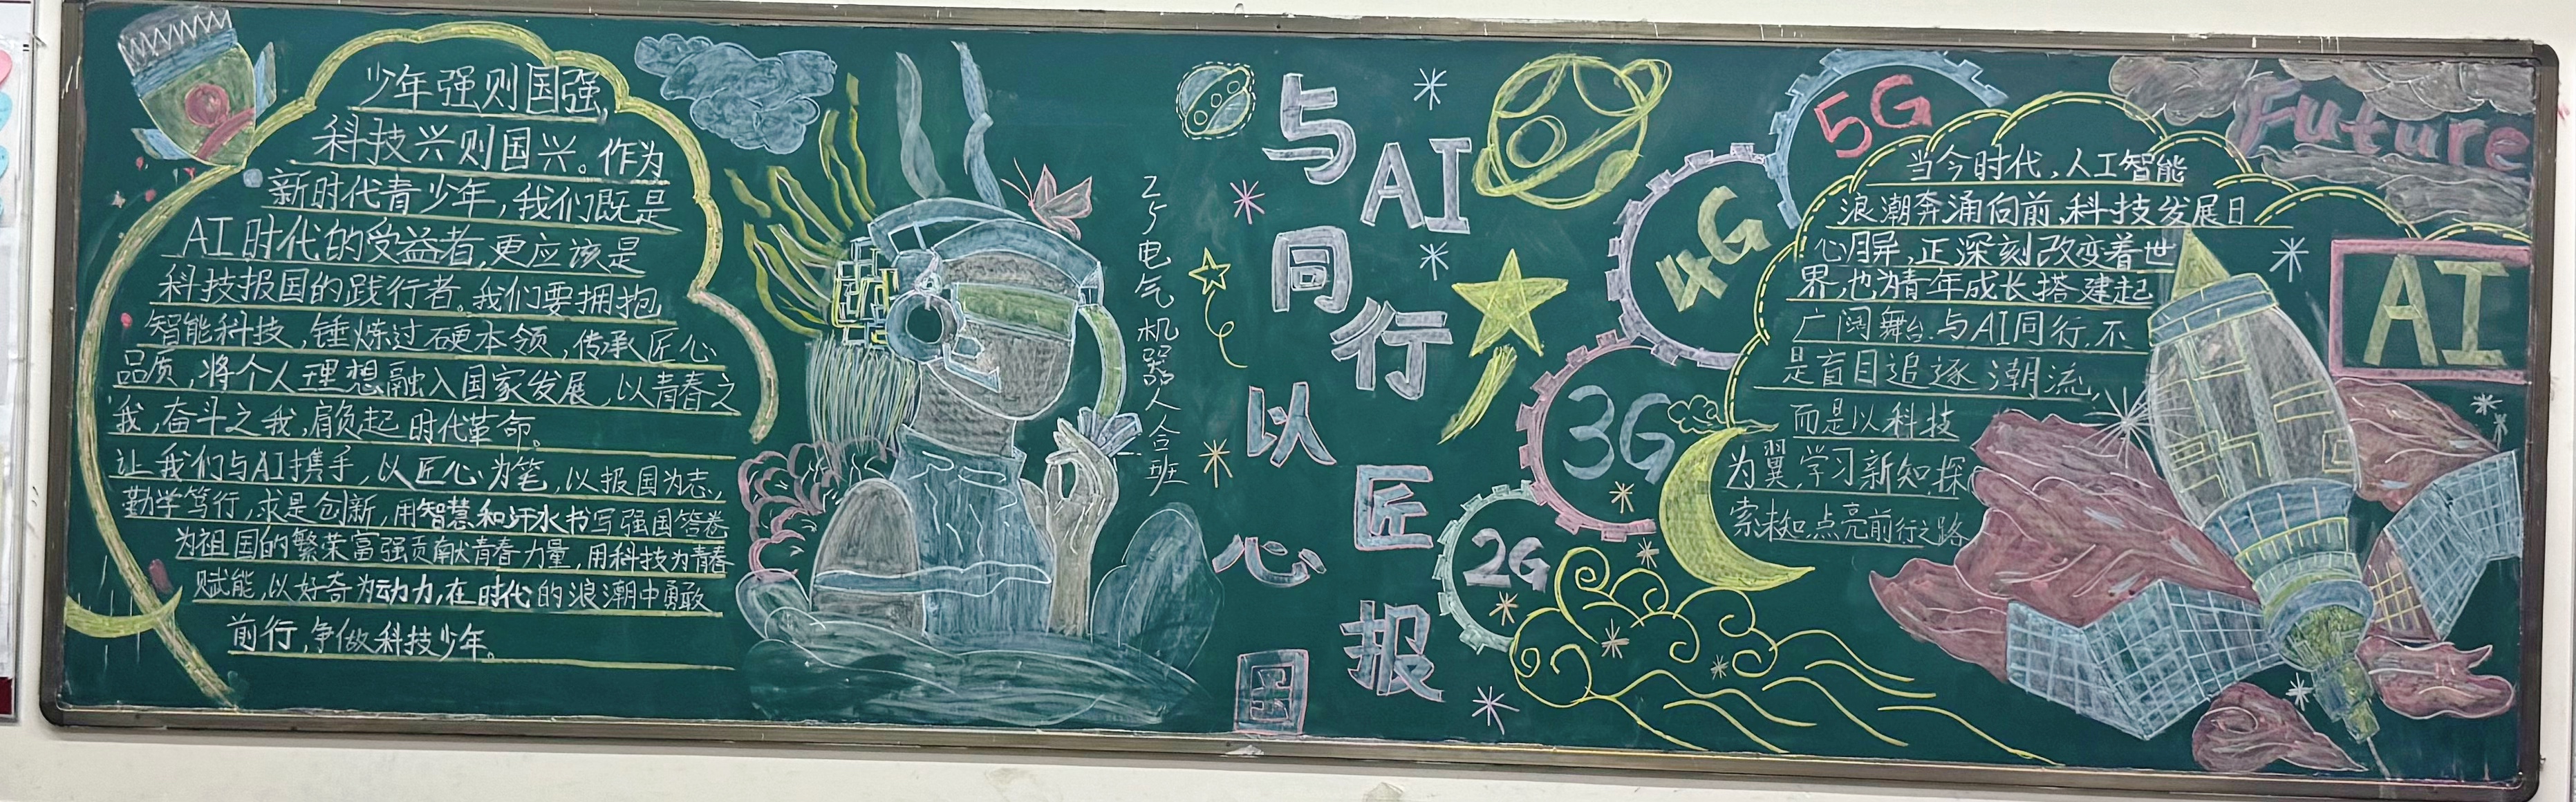 少年强则国强,
科技兴则国兴。作为
新时代青少年,我们既是
AI时代的受益者,更应该是
科技报国的践行者。我们要拥抱
智能科技,锤炼过硬本领,传承匠心
品质,将个人理想融入国家发展,以青春之
我,奋斗之我,肩负起时代革命。
让我们与AI携手,以匠心为笔,以报国为志,
勤学笃行,求是创新,用智慧和汗水书写强国答卷
为祖国的繁荣富强贡献青春力量,用科技为青春
赋能,以好奇为动力,在时代的浪潮中勇敢
前行,争做科技少年。
25电气机器人合班
与AI同行
以匠心报国
5G
4G
3G
2G
当今时代,人工智能
浪潮奔涌向前,科技发展日
新月异,正深刻改变着世
界,也为青年成长搭建起
广阔舞台.与AI同行,不
是盲目追逐潮流,
而是以科技
为翼,学习新知,探
索未知,点亮前行之路
Future
AI